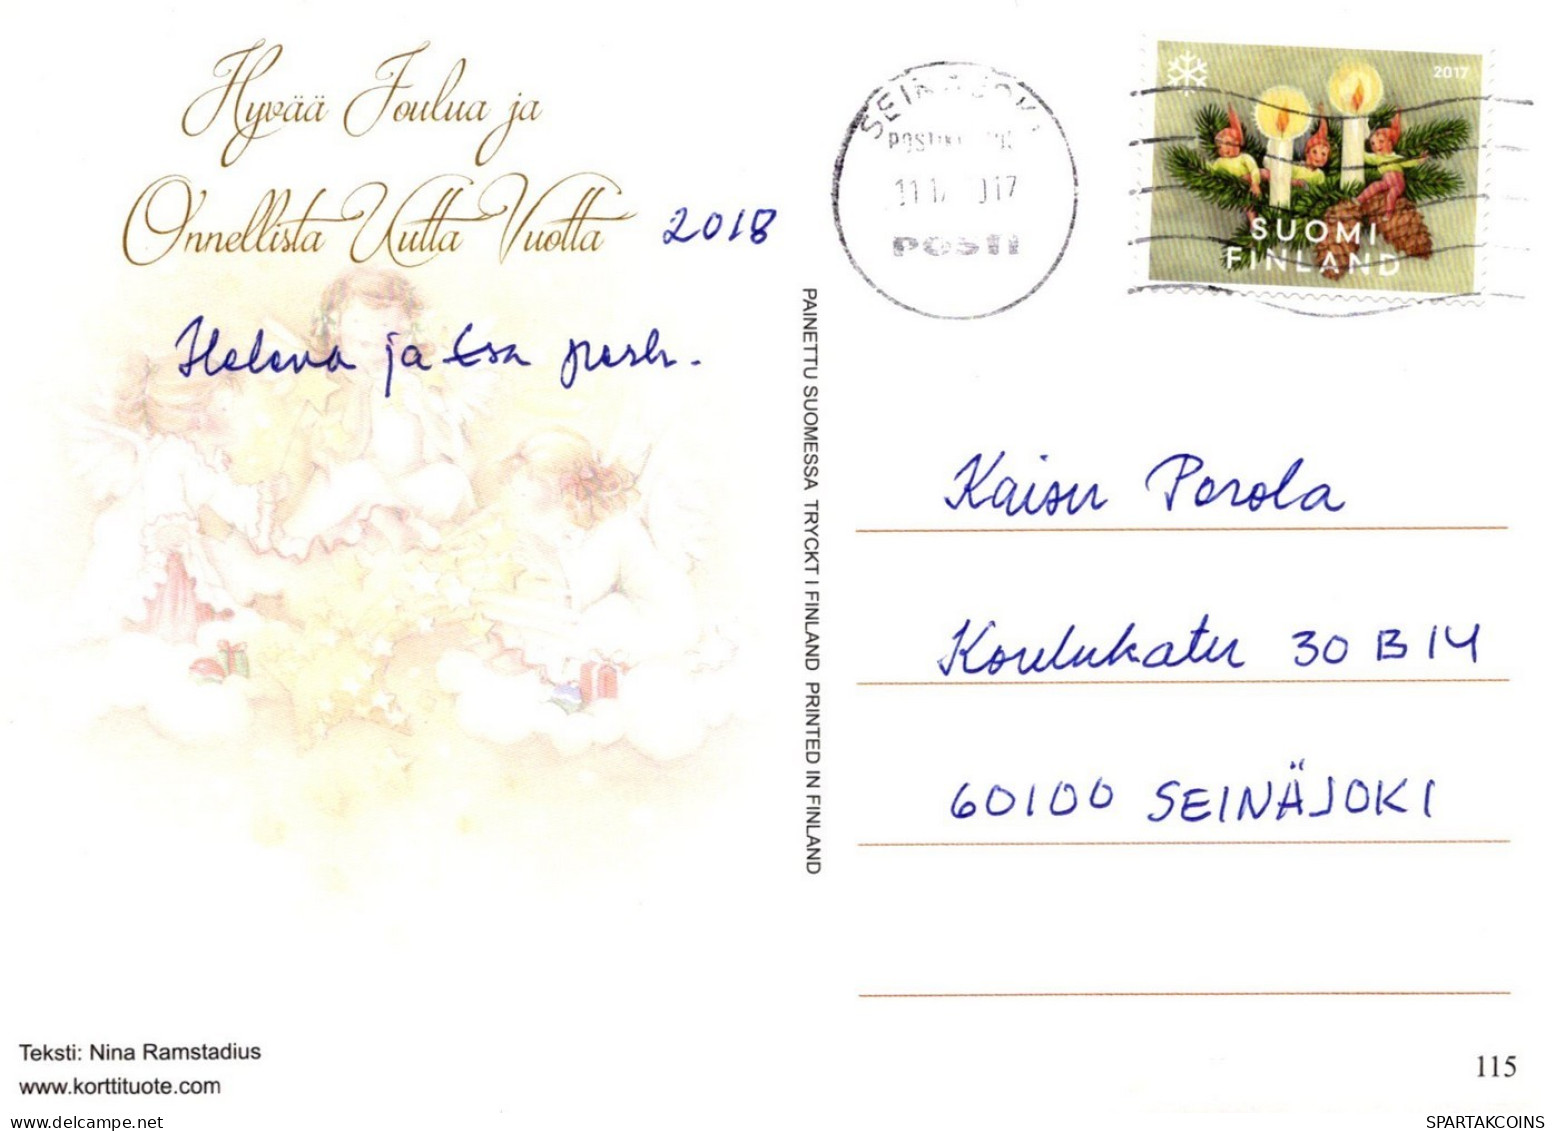 Hyvää Joulua ja
Onnellista Uutta Vuotta 2018
Helena ja Esa
SEINÄJOKI
POSTI
2017
SUOMI
FINLAND
PAINETTU SUOMESSA TRYCKT I FINLAND PRINTED IN FINLAND
Kaisu Porola
Koulukatu 30 B 14
60100 SEINÄJOKI
Teksti: Nina Ramstadius
www.korttituote.com
115
SPARTAKCOINS